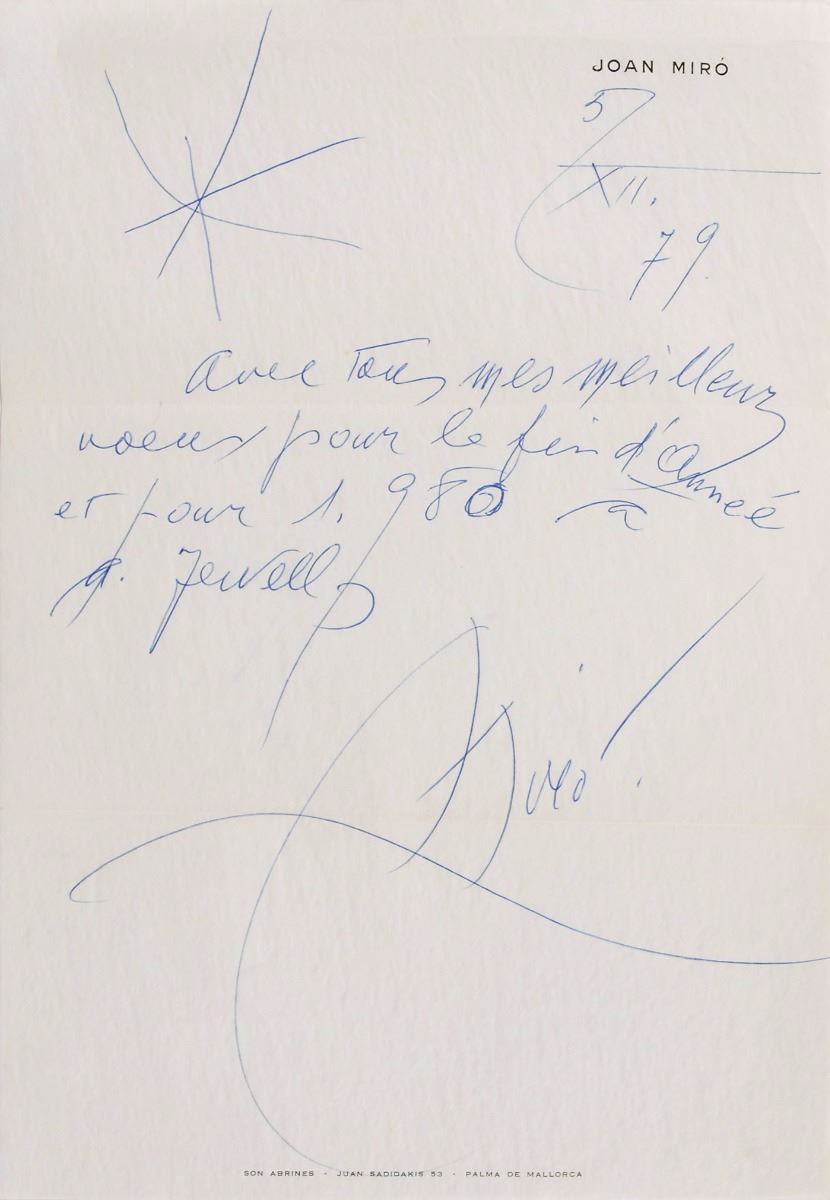 JOAN MIRÓ
5/
XII.
79.
avec tous mes meilleurs
voeux pour le fin d'année
et pour 1.980 a
Jewell
Miró.
SON ABRINES - JUAN SADIDAKIS 53 - PALMA DE MALLORCA